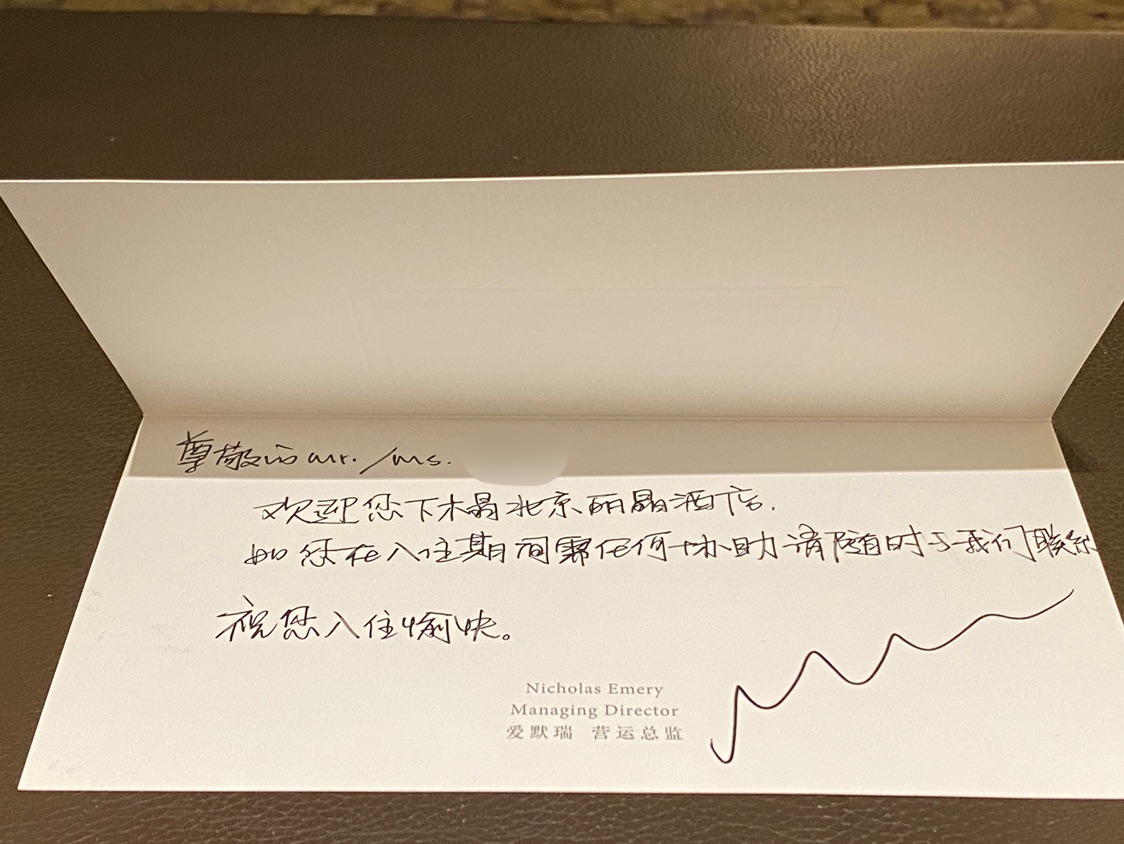 尊敬的 Mr./Ms.
欢迎您下榻北京丽晶酒店.
如您在入住期间需任何协助请随时于我们联系
祝您入住愉快。
Nicholas Emery
Managing Director
爱默瑞 营运总监